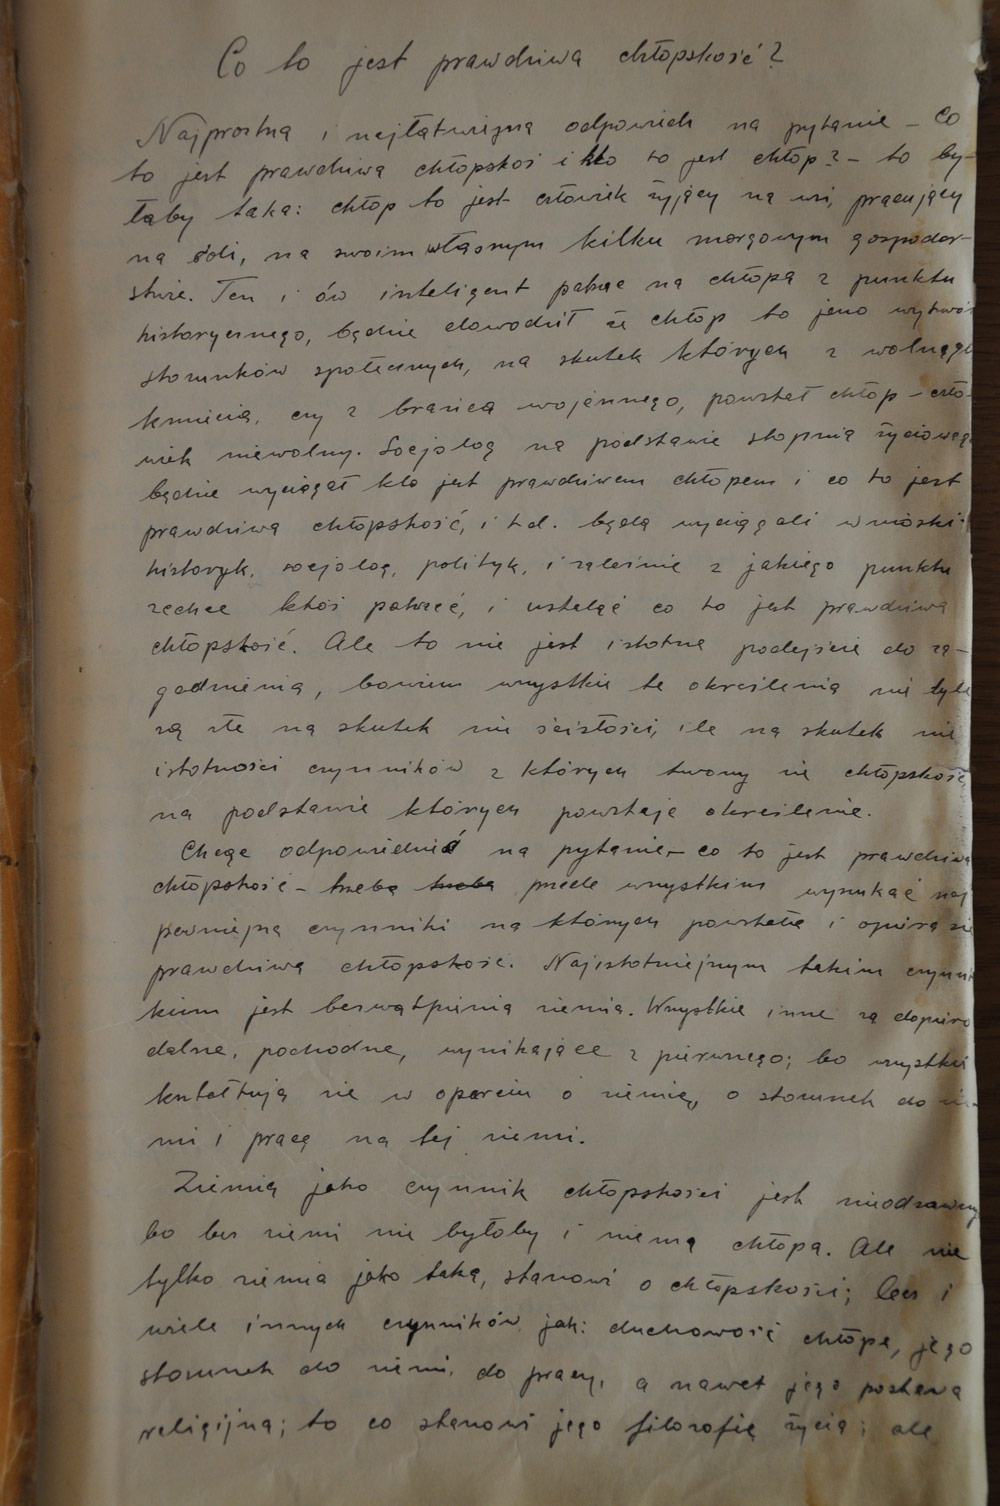 Co to jest prawdziwa chłopskość?
Najprostrza i najłatwiejszą odpowiedz na pytanie – Co
to jest prawdziwa chłopskoś i kto to jest chłop? – to by-
łaby taka: chłop to jest człowiek żyjący na wsi, pracujący
na roli, na swoim własnym kilku morgowym gospodar-
stwie. Ten i ów inteligent patrząc na chłopa z punktu
historycznego, będzie dowodził że chłop to jeno wytwór
stosunków społecznych, na skutek których z wolnego
kmiecia, czy z brańca wojennego, powstał chłop – czło-
wiek niewolny. Socjolog na podstawie stopnia życiowego
będzie wyciągał kto jest prawdziwem chłopem i co to jest
prawdziwa chłopskość, i t d. będą wyciągali wnioski:
historyk, socjolog, polityk, i zależnie z jakiego punktu
zechce ktoś patrzeć, i ustalać co to jest prawdziwa
chłopskość. Ale to nie jest istotne podejście do za-
gadnienia, bowiem wszystkie te określenia nie tyle
są złe na skutek nie ścisłości, ile na skutek nie
istotności czynników z których tworzy sie chłopskość,
na podstawie których powstaje określenie.
Chcąc odpowiednić na pytanie – co to jest prawdziwa
chłopskość – trzeba trzeba przede wszystkim wyszukać naj
pewniejszą czynniki na których powstała i opiera się
prawdziwa chłopskość. Najistotniejszym takim czynni
kiem jest bezwątpienia ziemia. Wszystkie inne są dopiero
dalsze, pochodne, wynikające z pierwszego; bo wszystkie
kształtują sie w oparciu o ziemię, o stosunek do zie-
mi i pracą na tej ziemi.
Ziemia jako czynnik chłopskości jest nieodzowny
bo bez ziemi nie byłoby i niema chłopa. Ale nie
tylko ziemia jako taka, stanowi o chłopskości; lecz i
wiele innych czynników jak: duchowość chłopa, jego
stosunek do ziemi, do pracy, a nawet jego postawa
religijna; to co stanowi jego filozofię życia; ale